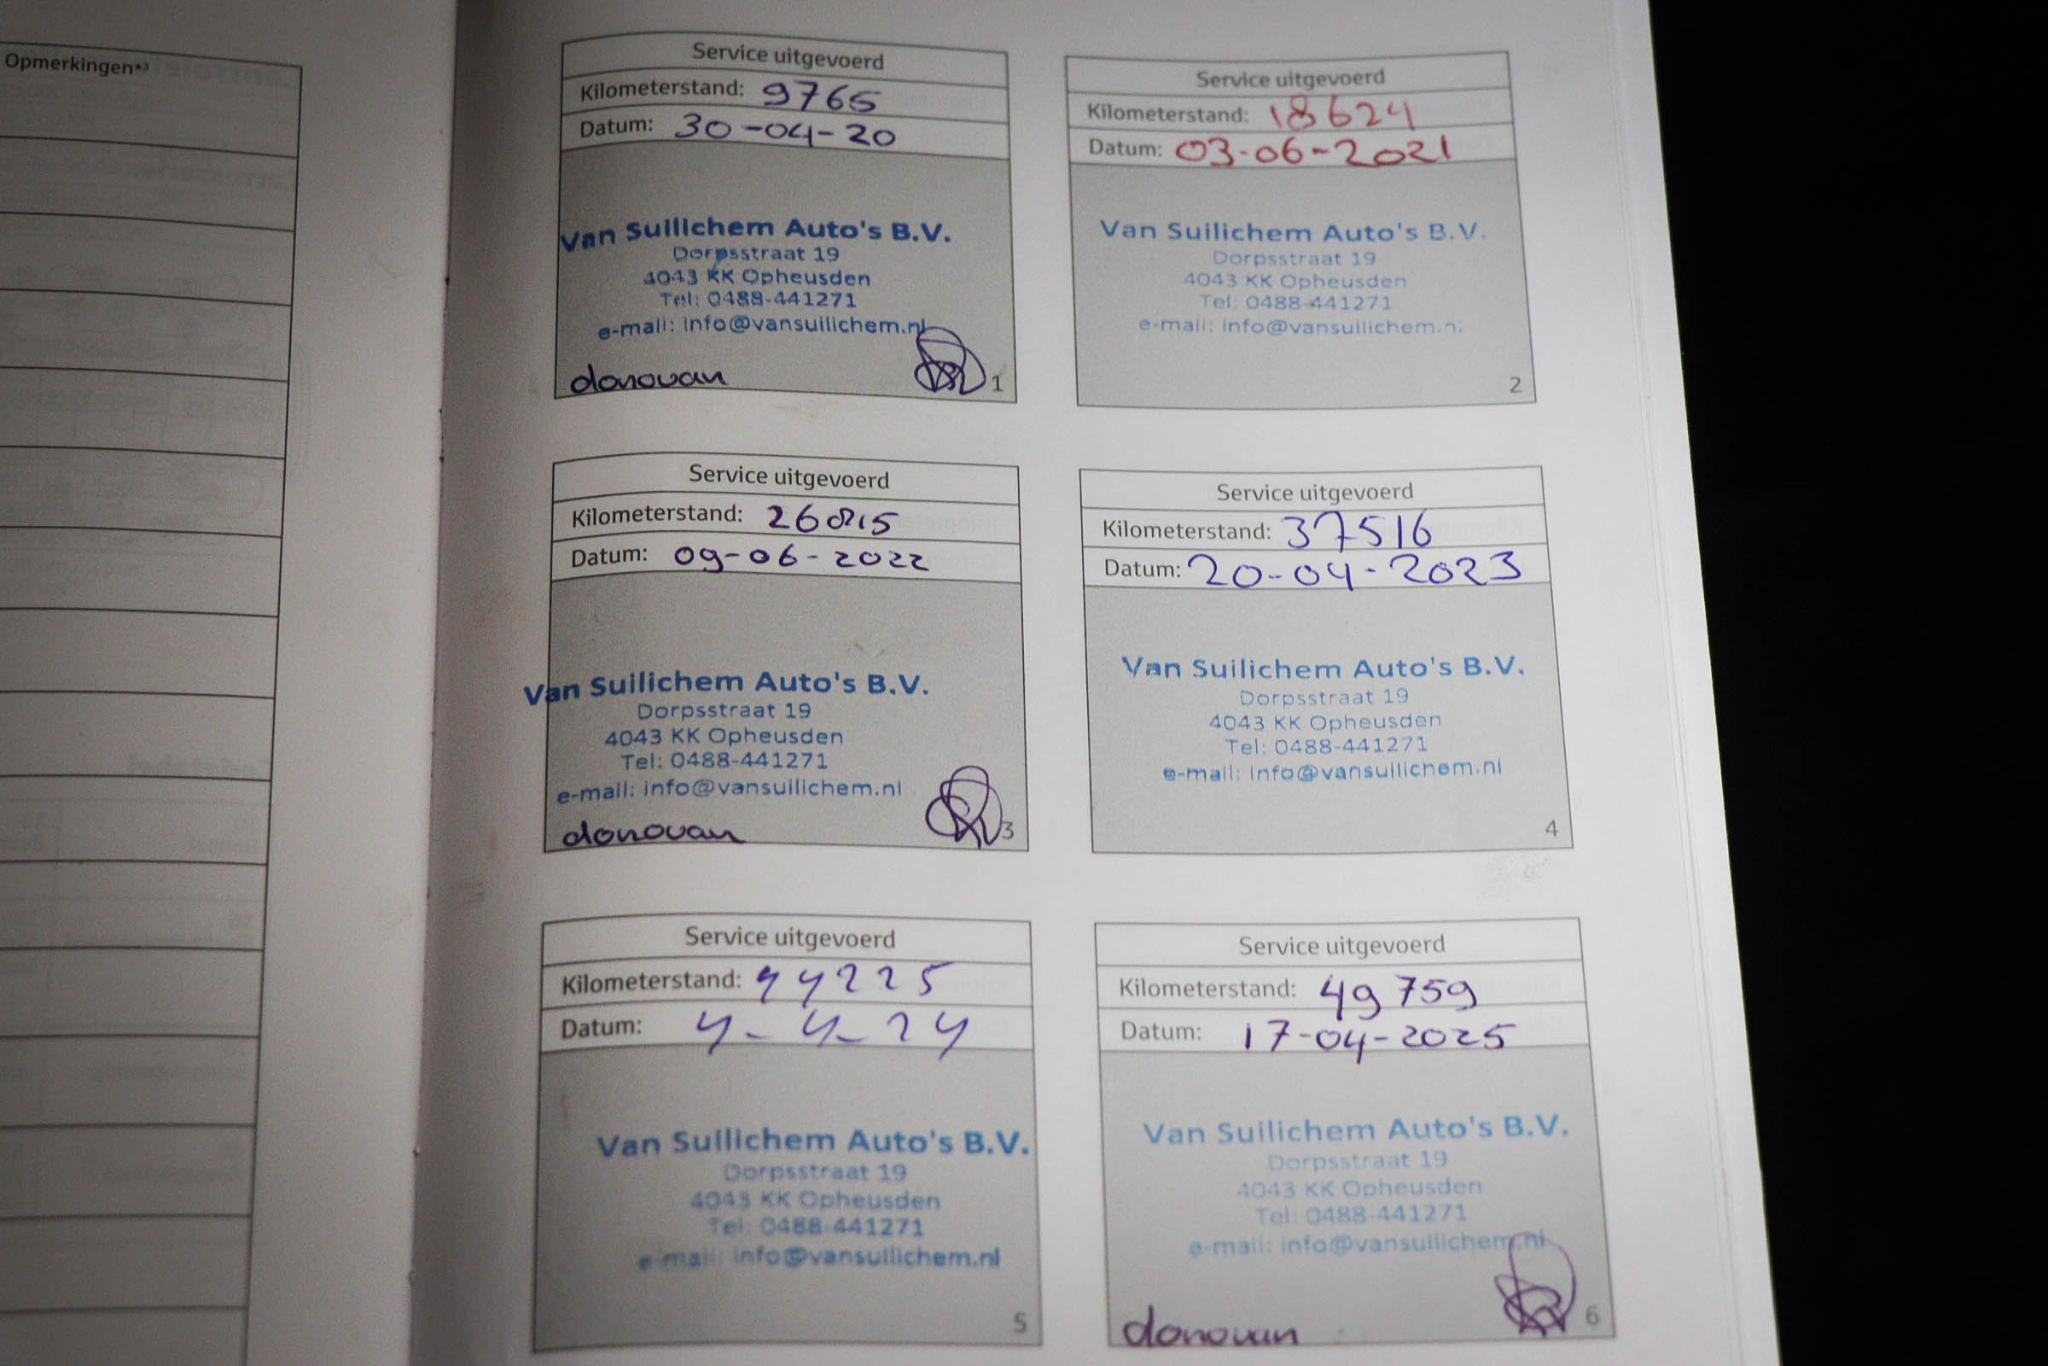 Opmerkingen*³
Service uitgevoerd
Kilometerstand: 9765
Datum: 30-04-20
Van Suilichem Auto's B.V.
Dorpsstraat 19
4043 KK Opheusden
Tel: 0488-441271
e-mail: info@vansuilichem.nl
donovan
1
Service uitgevoerd
Kilometerstand: 18624
Datum: 03-06-2021
Van Suilichem Auto's B.V.
Dorpsstraat 19
4043 KK Opheusden
Tel: 0488-441271
e-mail: info@vansuilichem.nl
2
Service uitgevoerd
Kilometerstand: 26815
Datum: 09-06-2022
Van Suilichem Auto's B.V.
Dorpsstraat 19
4043 KK Opheusden
Tel: 0488-441271
e-mail: info@vansuilichem.nl
donovan
3
Service uitgevoerd
Kilometerstand: 37516
Datum: 20-04-2023
Van Suilichem Auto's B.V.
Dorpsstraat 19
4043 KK Opheusden
Tel: 0488-441271
e-mail: info@vansuilichem.nl
4
Service uitgevoerd
Kilometerstand: 44225
Datum: 4-4-24
Van Suilichem Auto's B.V.
Dorpsstraat 19
4043 KK Opheusden
Tel: 0488-441271
e-mail: info@vansuilichem.nl
5
Service uitgevoerd
Kilometerstand: 49759
Datum: 17-04-2025
Van Suilichem Auto's B.V.
Dorpsstraat 19
4043 KK Opheusden
Tel: 0488-441271
e-mail: info@vansuilichem.nl
donovan
6